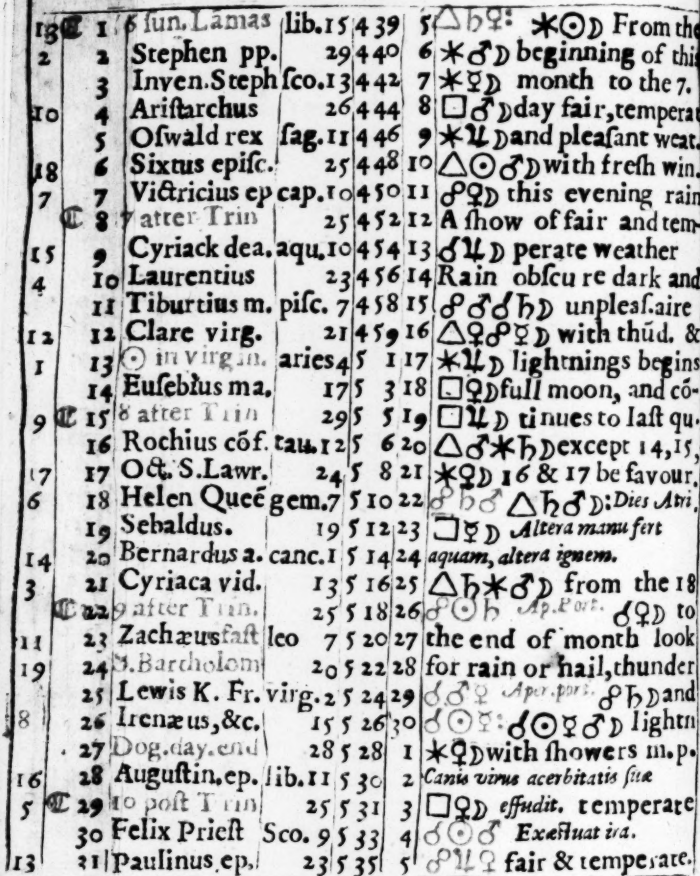 13 C 1 6 sun. Lamas lib. 15 4 39 5 △♄♀: ✶☉☽ From the
2 2 Stephen pp. 29 4 40 6 ✶♂☽ beginning of this
3 Inven.Steph sco. 13 4 42 7 ✶☿☽ month to the 7.
10 4 Ariſtarchus 26 4 44 8 □♂☽ day fair, tempera
5 Oſwald rex ſag. 11 4 46 9 ✶♃☽ and pleaſant weat.
18 6 Sixtus epiſc. 25 4 48 10 △☉♂☽ with freſh win.
7 7 Victricius ep cap. 10 4 50 11 ☍♀☽ this evening rain
C 8 7 after Trin 25 4 52 12 A ſhow of fair and tem-
15 9 Cyriack dea. aqu. 10 4 54 13 ☌♃☽ perate weather
4 10 Laurentius 23 4 56 14 Rain obſcu re dark and
11 Tiburtius m. piſc. 7 4 58 15 ☍♂☌♄☽ unpleaſ.aire
12 12 Clare virg. 21 4 59 16 △♀☍☿☽ with thūd. &
1 13 ☉ in virgin. aries 4 5 1 17 ✶♃☽ lightnings begins
14 Euſebius ma. 17 5 3 18 □♀☽ full moon, and cō-
9 C 15 8 after Trin 29 5 5 19 □♃☽ tinues to laſt qu.
16 Rochius cōf. tau. 12 5 6 20 △♂✶♄☽ except 14,15,
17 17 Oct. S.Lawr. 24 5 8 21 ✶♀☽ 16 & 17 be favour.
6 18 Helen Queē gem. 7 5 10 22 ☍♄♂ △♄♂☽: Dies Atri,
19 Sebaldus. 19 5 12 23 □☿☽ Altera manu fert
14 20 Bernardus a. canc. 1 5 14 24 aquam, altera ignem.
3 21 Cyriaca vid. 13 5 16 25 △♄✶♂☽ from the 18
C 22 9 after Trin. 25 5 18 26 ☍☉♄ Ap.Port. ☌♀☽ to
11 23 Zachæus faſt leo 7 5 20 27 the end of month look
19 24 S.Bartholom 20 5 22 28 for rain or hail, thunder
25 Lewis K. Fr. virg. 2 5 24 29 ☌♂☿ Aper.port. ☍♄☽ and
8 26 Irenæus,&c. 15 5 26 30 ☌☉☿: ☌☉☿♂☽ lightn
27 Dog.day.end 28 5 28 1 ✶♀☽ with ſhowers m.p.
16 28 Auguſtin.ep. lib. 11 5 30 2 Canis virus acerbitatis ſuæ
5 C 29 10 poſt Trin 25 5 31 3 □♀☽ effudit. temperate
30 Felix Prieſt Sco. 9 5 33 4 ☌☉♂ Exæſtuat ira.
13 31 Paulinus.ep. 23 5 35 5 ☍♃♀ fair & temperate.